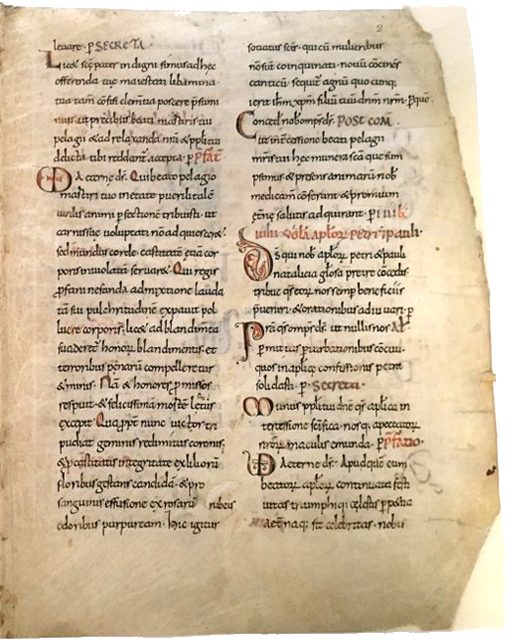 2
levare · p̄ SECRETA ·
Licet sc̄e pater indigni simus adhęc
offerenda tuę maiestati libamina
tua tam̄ cōfisi clementia poscere p̄sumi
mus ut precibus beati martiris tui
pelagii & ad relaxanda nr̄a & pp̄li tui
delicta tibi reddant accepta · p̄ P̄fat̄
Aeterne ds̄ · Qui beato pelagio
martiri tuo in etate puerili talē
virilis animi p̄fectione tribuisti · ut
carnis suę voluptati non adquiescer&
sed mundi corde · castitatē etiā cor
poris inviolatā servar& · Qui regis
p̄fani nefanda admixtione lauda
tā sui pulchritudinē expavit pol
luere corporis · lic& ad blandimta
suader& honor blandimentis · et
terroribus poenarū compeller& tur
& minis · Nā & honores p̄missos
respuit · & felicissimā mortē lętus
excepit · Quapp̄t nunc victor tri
pudiat geminis redimitus coronis ·
& p̄ castitatis integritate ex liliorū
floribus gestans candidā · & pro
sanguinis effusione ex rosarū rubeis
odoribus purpuream · hic igitur
socratus scīs · qui cū mulieribus
nō sunt coinquinati · novū cōcin&
canticū · sequit̄ agnū quo cunq;
ierit ihm̄ xpm̄ filiū tuū dn̄m nr̄m · p̄ quē ·
Conced̄ nob omps̄ ds̄ · POST COM̄
ut in̄tcessione beati pelagii
mr̄is tui hęc munera scā que sum
psimus & presens animarū nob̄
medicam̄ cōferant · & premium
ęt̄nę salutis adquirant · p̄ iiii k̄
iulii Nat̄ apl̄or petri & pauli ·
Ds̄ qui nob̄ apl̄or petri & pauli
natalicia glosa preire cōcedis
tribue q̄s eor nos semp beneficiis
p̄veniri · & orationibus adiuvari · p̄
Pr̄a q̄s omps̄ ds̄ · ut nullis nos Al̄
p̄mittas p̄turbationibus cōcuti ·
quos in aplicę confessionis petra
solidasti · p̄ · Secreta ·
Munus pp̄li tui dn̄e q̄s aplica in
tercessione scīfica · nosq; a peccator
nr̄or maculis emunda · p̄ P̄fatio ·
Aeterne ds̄ · Apud quē cum
beator apl̄or continuata festi
vitas triumphi q; cęlestis p̄petua
& aet̄na q; sit celebritas · nobis